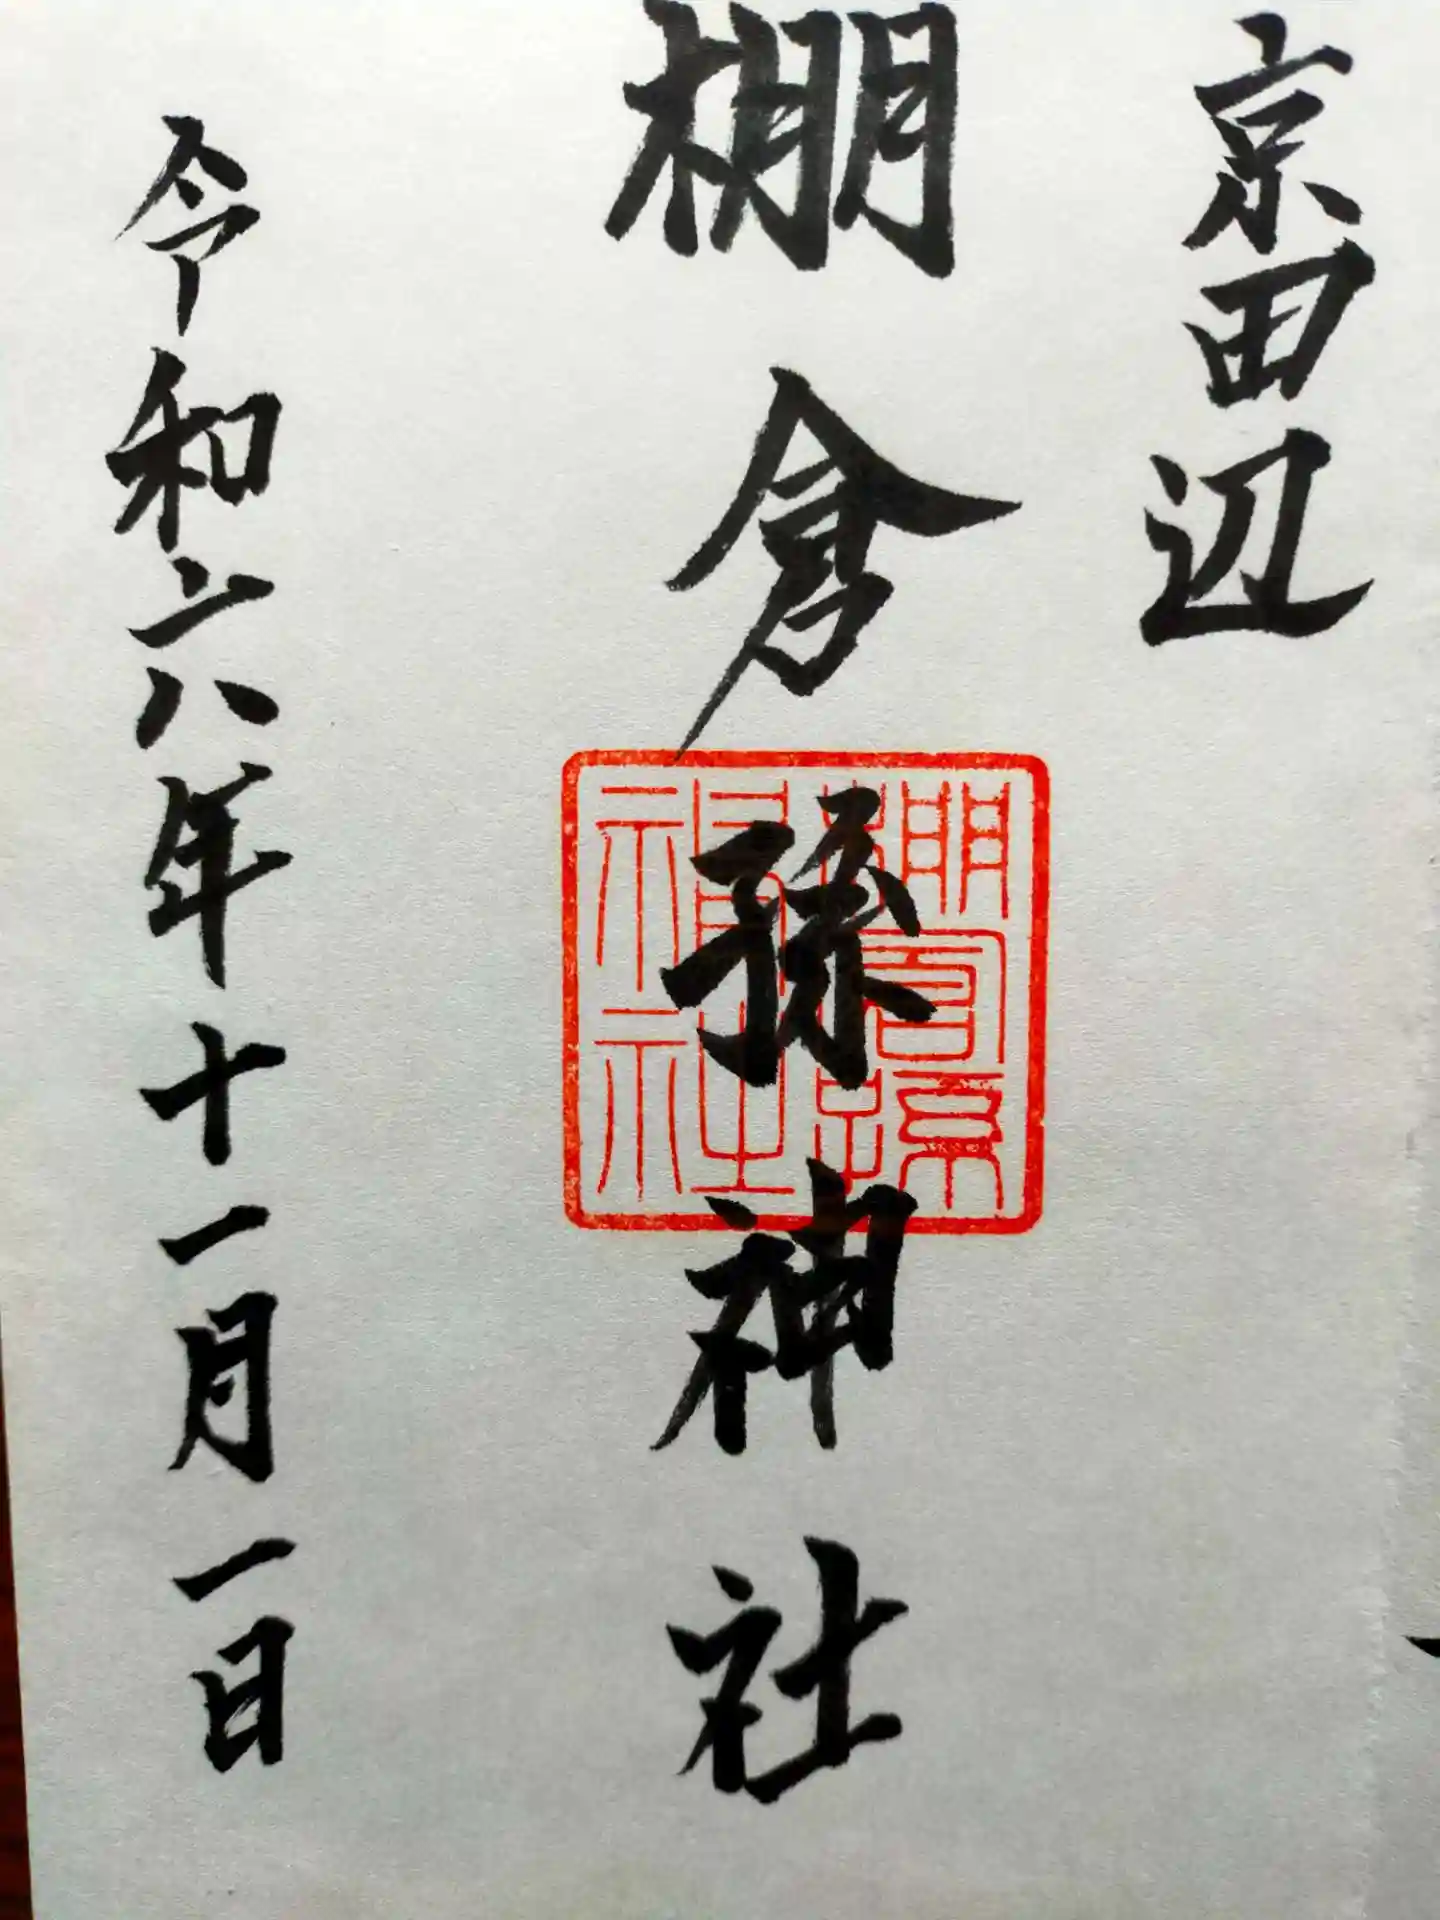 京田辺
棚倉孫神社
令和六年十一月一日
棚倉孫神社